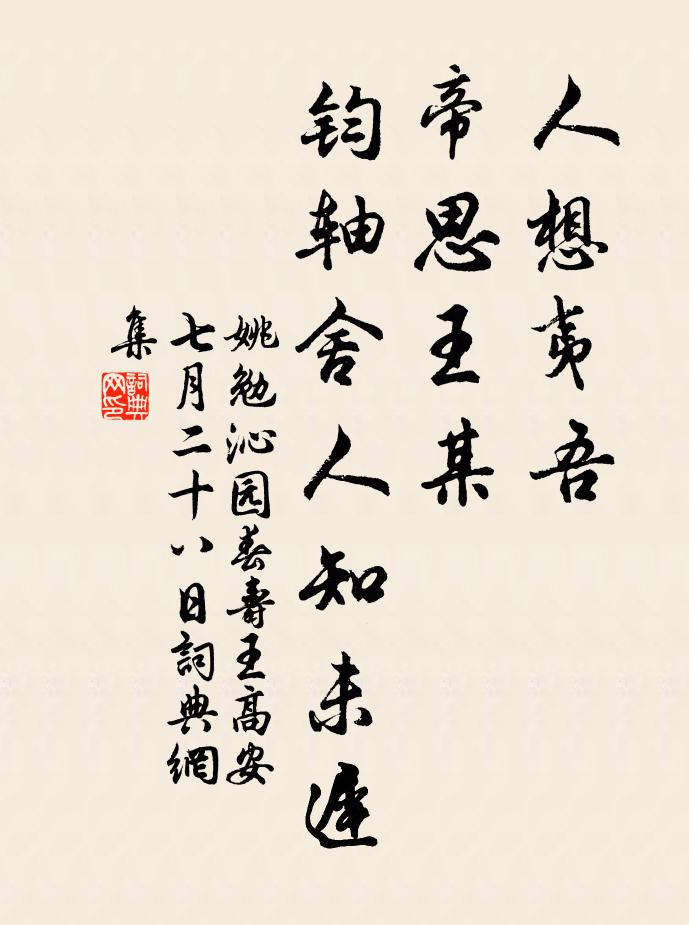 人想夷吾
帝思王某
钧轴舍人知未遲
姚勉沁园春壽王高安
七月二十八日詞典網
集
詞典网印